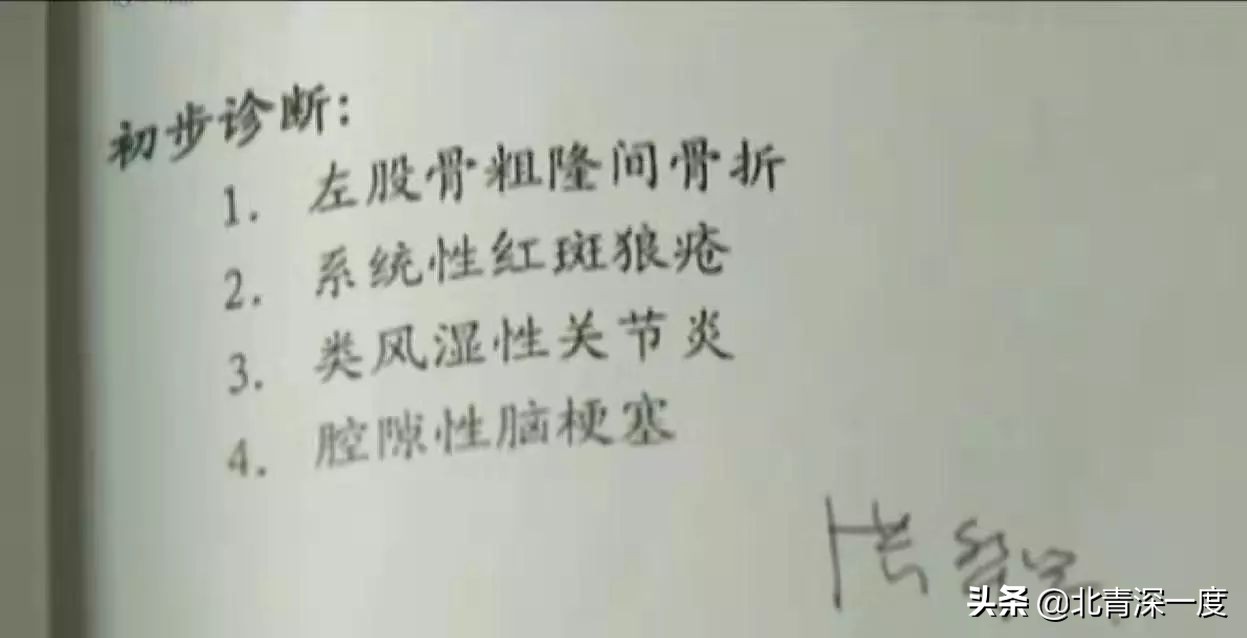 初步诊断:
1. 左股骨粗隆间骨折
2. 系统性红斑狼疮
3. 类风湿性关节炎
4. 腔隙性脑梗塞
头条 @北青深一度